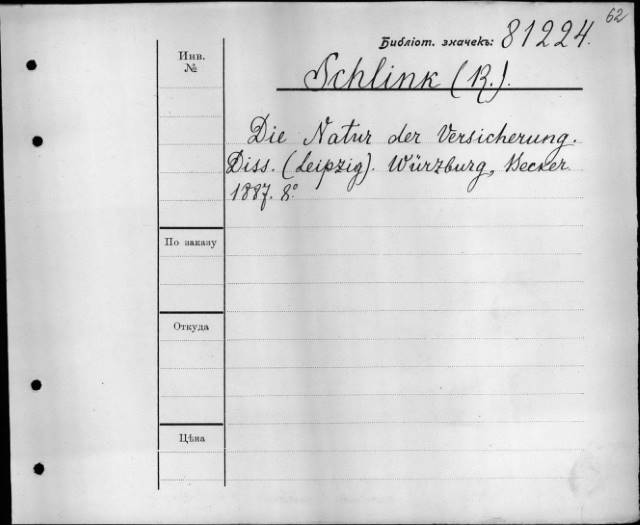 62
Библіот. значекъ: 81224.
Инв.
№
Schlink (R.).
Die Natur der Versicherung.
Diss. (Leipzig). Würzburg, Becker
1887. 8°.
По заказу
Откуда
Цѣна